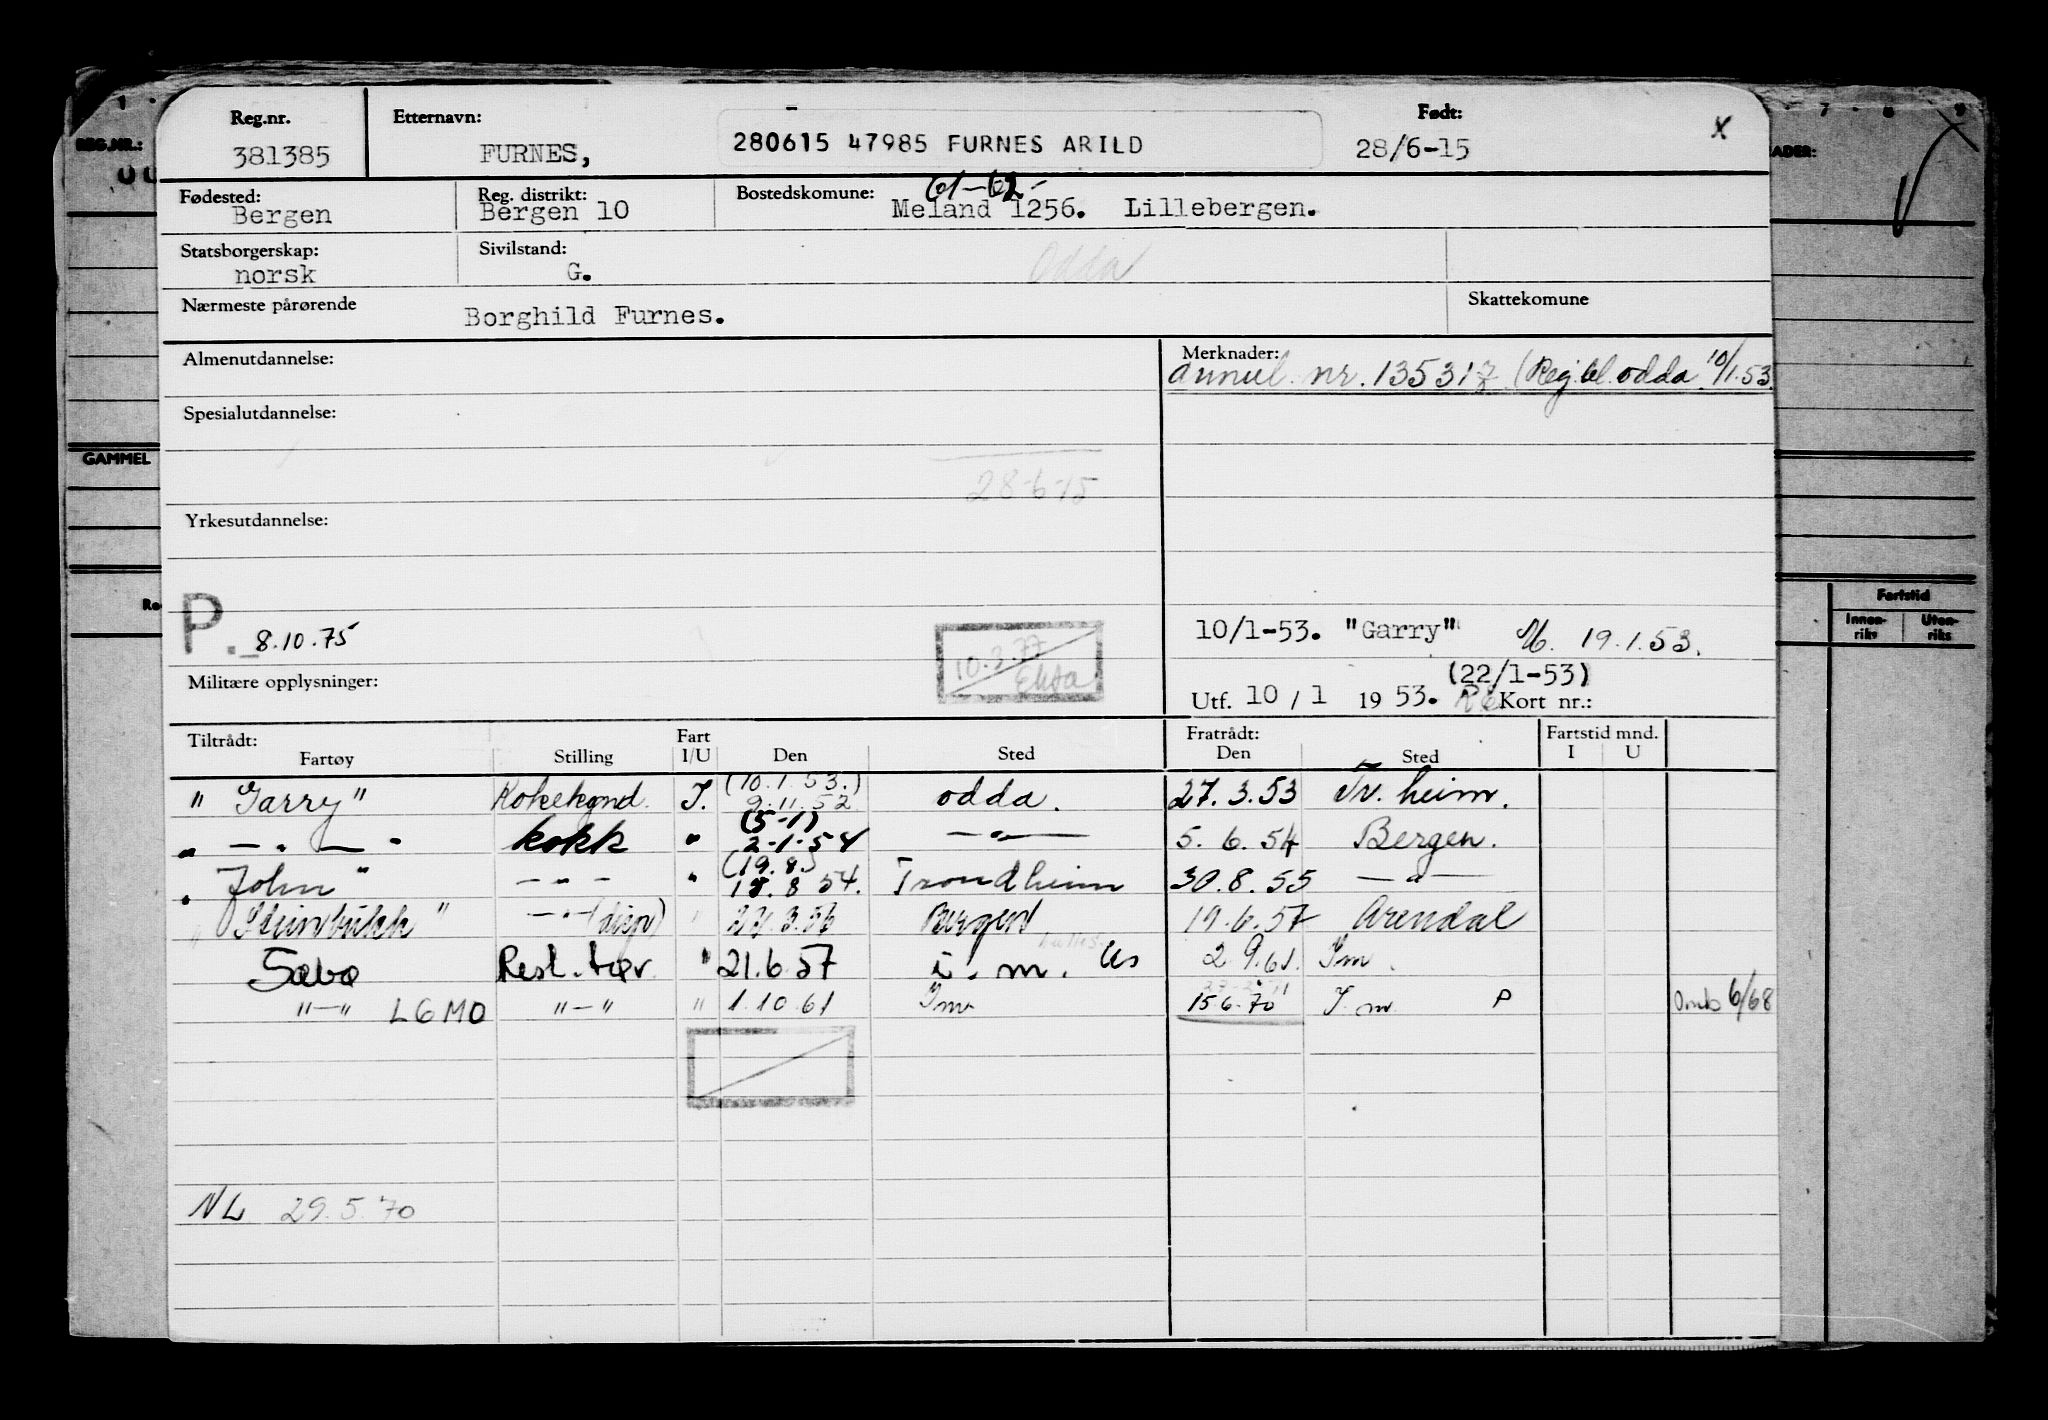 Reg.nr. Etternavn: Født: x
381385 FURNES, 280615 47985 FURNES ARILD 28/6-15
Fødested: Reg. distrikt: Bostedskomune: 61-62-
Bergen Bergen 10 Meland 1256. Lillebergen.
Statsborgerskap: Sivilstand:
norsk G. Odda
Nærmeste pårørende Borghild Furnes. Skattekomune
Almenutdannelse: Merknader:
annul. nr. 135317 (Reg.bl. odda 10/1.53.
Spesialutdannelse:
28-6-15
Yrkesutdannelse:
P. 8.10.75
10/1-53. "Garry" M. 19.1.53.
10.3.77
(22/1-53)
Militære opplysninger:
Utf. 10/1 1953. Kort nr.:
Tiltrådt: Fart Fratrådt: Fartstid mnd.
Fartøy Stilling I/U Den Sted Den Sted I U
(10.1.53.)
"Garry" Kokekynd. I. 9.11.52 odda. 27.3.53 Tr.heim.
(5-1)
" — " — " kokk " 2-1-54 — " — 5.6.54 Bergen.
(19.8.)
"John" — " — " 18.8 54. Trondheim 30.8.55 — " —
"Steinbukk" — " — (disp) " 3.56 Bergen 19.6.57 Arendal
Sæbø Rest. tør. " 21.6.57 i. m. 2 9.61. Im.
"—" LGMO "—" " 1.10.61 Im 15.6.70 I.m. P 6/68
NL 29.5.70
REG.NR.:
GAMMEL
7 8 9
Fartstid
Innen-riks Uten-riks